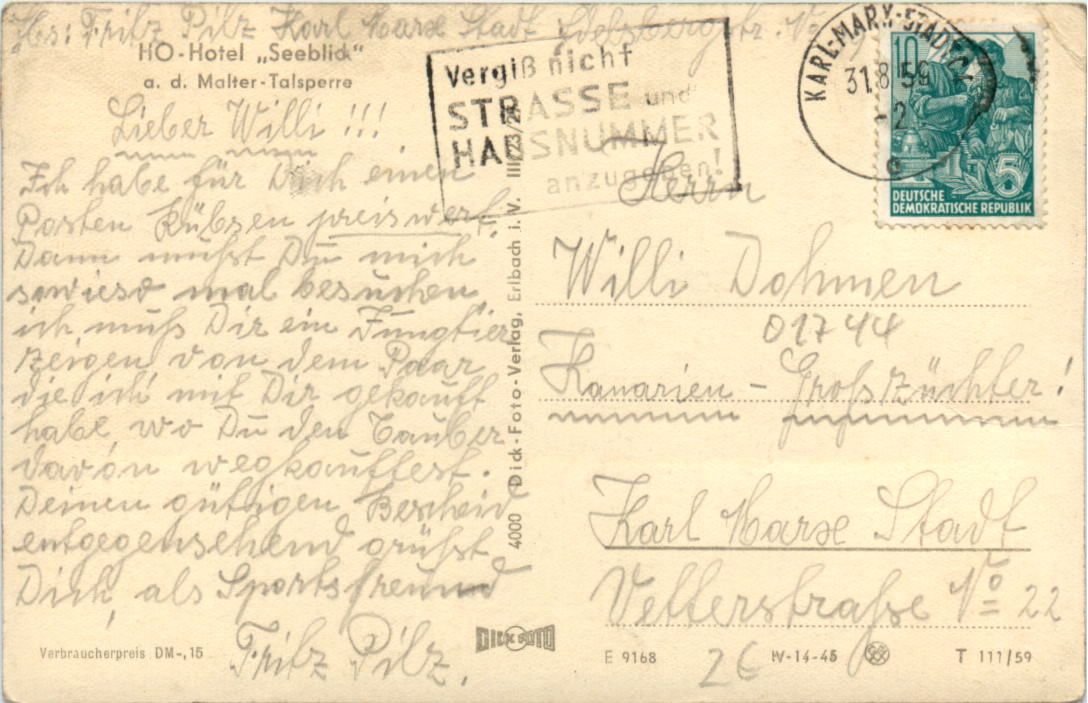 Abs: Fritz Pilz Karl Marx Stadt Adelsbergstr. No
HO-Hotel „Seeblick"
a. d. Malter-Talsperre
Lieber Willi !!!
Ich habe für Dich einen
Posten Rübsen preiswert.
Dann mußt Du mich
sowieso mal besuchen,
ich muß Dir ein Jungtier
zeigen von dem Paar
die ich mit Dir gekauft
habe, wo Du den Tauber
davon wegkauftest.
Deinen gütigen Bescheid
entgegensehend grüßt
Dich, als Sportsfreund
Fritz Pilz.
Verbraucherpreis DM-,15
4000 Dick-Foto-Verlag, Erlbach i. V.
DICK FOTO
Vergiß nicht
STRASSE und
HAUSNUMMER
anzugeben!
KARL-MARX-STADT
31.8.59
-2
c
10
5
DEUTSCHE
DEMOKRATISCHE REPUBLIK
Herrn
Willi Dohmen
01744
Kanarien - Großzüchter!
Karl Marx Stadt
Vetterstraße No 22
E 9168
2€
IV-14-45
T 111/59